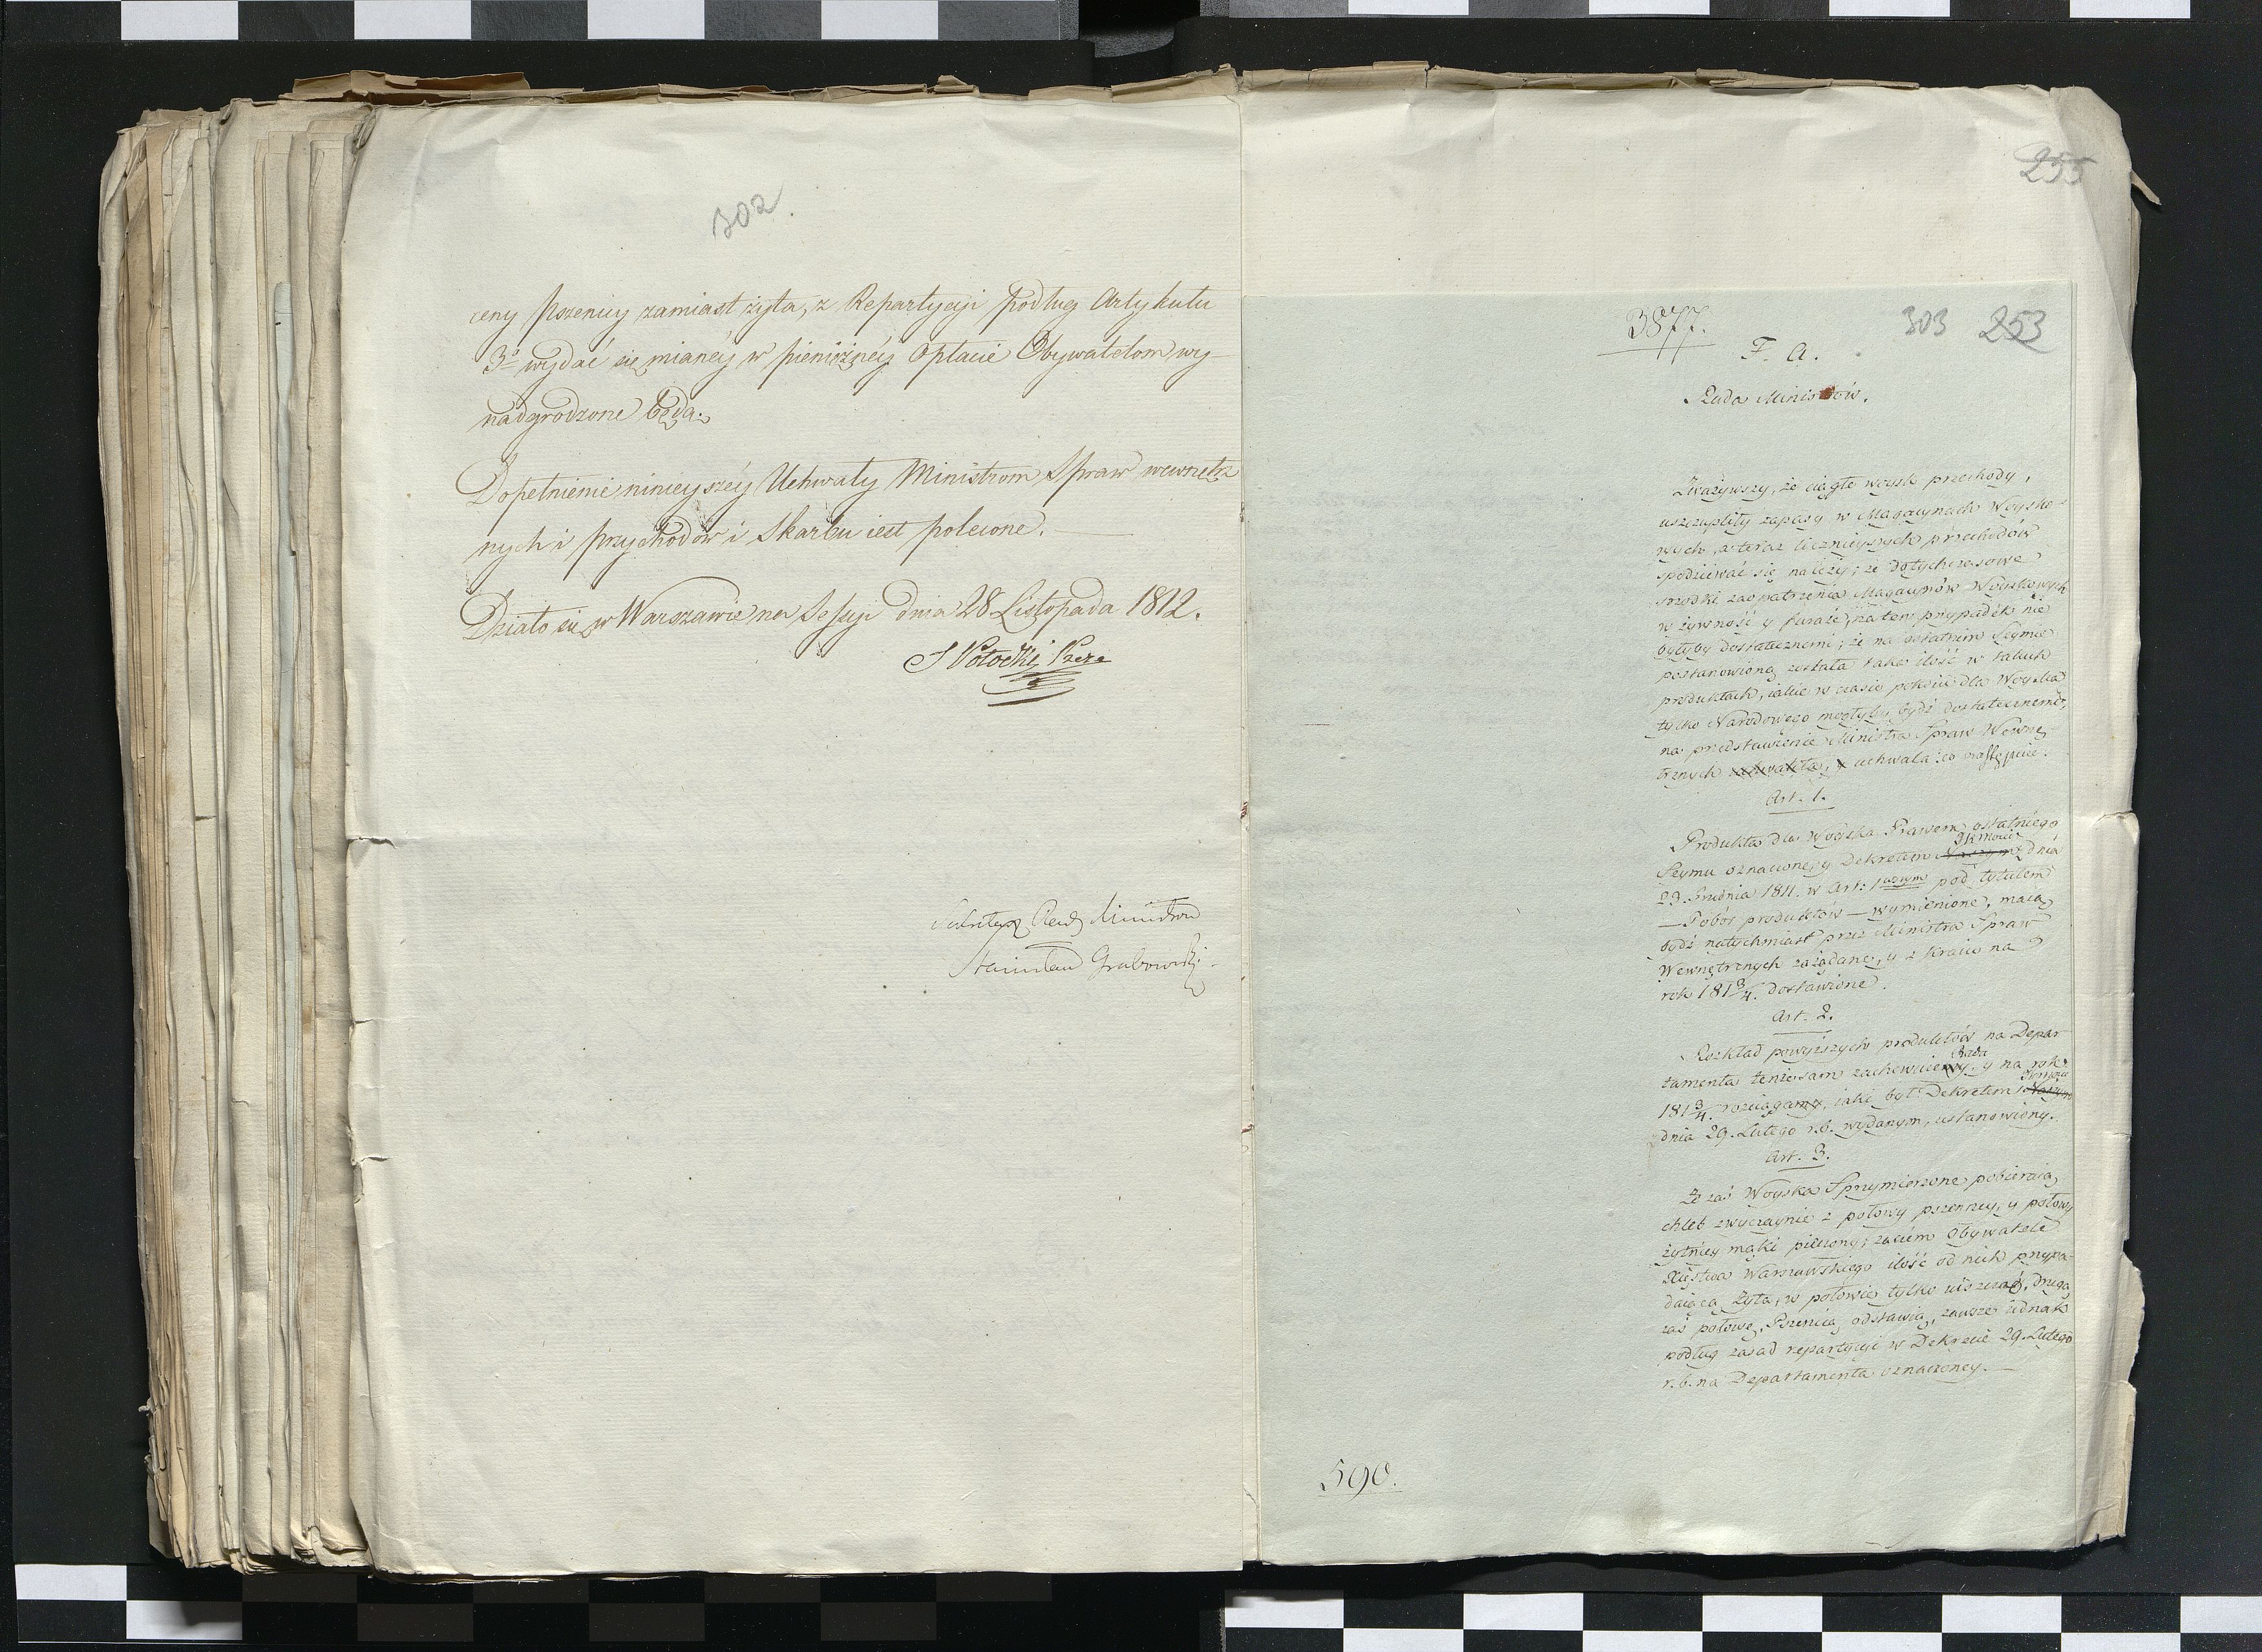 302.
ceny Pszenicy zamiast żyta, z Repartycyi podług Artykułu
3º wydać się mianéy w pieniężnéy Opłacie Obywatelom wy-
nadgrodzone będą.
Dopełnienie ninieyszéy Uchwały Ministrom Spraw wewnętrz
nych i przychodów i Skarbu iest polecone.
Działo się w Warszawie na Sessyi dnia 28 Listopada 1812.
S Potocki Preze
Sekretarz Rady Ministrów
Stanisław Grabowski
255
3877.
303 253
F. A.
Rada Ministrów.
Zważywszy, że ciągłe woysk przechody,
uszczupliły zapasy w Magazynach Woysko-
wych, a teraz licznieyszych przechodów
spodziewać się należy; że dotychczasowe
srzodki zaopatrzenia Magazynów Woyskowych
w żywność y furaże, na ten przypadek nie
byłyby dostatecznemi; że na ostatnim Seymie
postanowioną została taka ilość w takich
produktach, iakie w czasie pokoiu dla Woyska
tylko Narodowego mogłyby bydź dostatecznemi,
na przedstawienie Ministra Spraw Wewnę
trznych uchwala co następuie.
Art. 1.
Produkta dla Woyska Prawem ostatniego
Seymu oznaczone, y Dekretem dnia
23. Grudnia 1811. w Art: 1wszym pod tytułem
— Pobór produktów — wymienione, maią
bydź natychmiast przez Ministra Spraw
Wewnętrznych zażądane, y z Kraiu na
rok 181 3/4. dostawione.
Art. 2.
Rozkład powyższych produktów na Depar
Rada
tamenta tenże sam zachowuie y na rok
181 3/4. rozciąga, iaki był Dekretem
dnia 29. Lutego r.b. wydanym, ustanowiony.
Art. 3.
Że zaś Woyska Sprzymierzone pobieraią
chleb zwyczaynie z połowy pszenney, y połowy
żytniey mąki pieczony; zaczém Obywatele
Xięstwa Warszawskiego ilość od nich przypa-
daiącą Żyta, w połowie tylko uiszczą, drugą
zaś połowę, Pszenicą odstawią, zawsze iednak
podług zasad repartycyi w Dekrecie 29. Lutego
r.b. na Departamenta oznaczoney.
590.